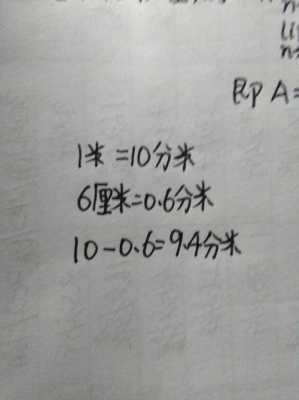 n→
li
n→
即 A=
1米 =10分米
6厘米=0.6分米
10-0.6=9.4分米